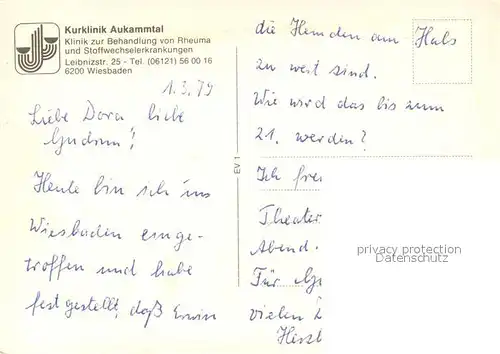 Kurklinik Aukammtal
Klinik zur Behandlung von Rheuma
und Stoffwechselerkrankungen
Leibnizstr. 25 - Tel. (06121) 56 00 16
6200 Wiesbaden
1.3.79
Liebe Dora liebe
Gudrun!
Heute bin ich in
Wiesbaden einge-
troffen und habe
festgestellt, daß Erwin
EV 1
die Hemden am Hals
zu weit sind.
Wie wird das bis zum
21. werden?
Ich frei
Theater
Abend.
Für
vielen
Herzl
privacy protection
Datenschutz